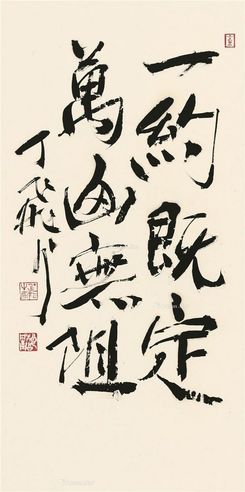 一約既定
萬山無阻